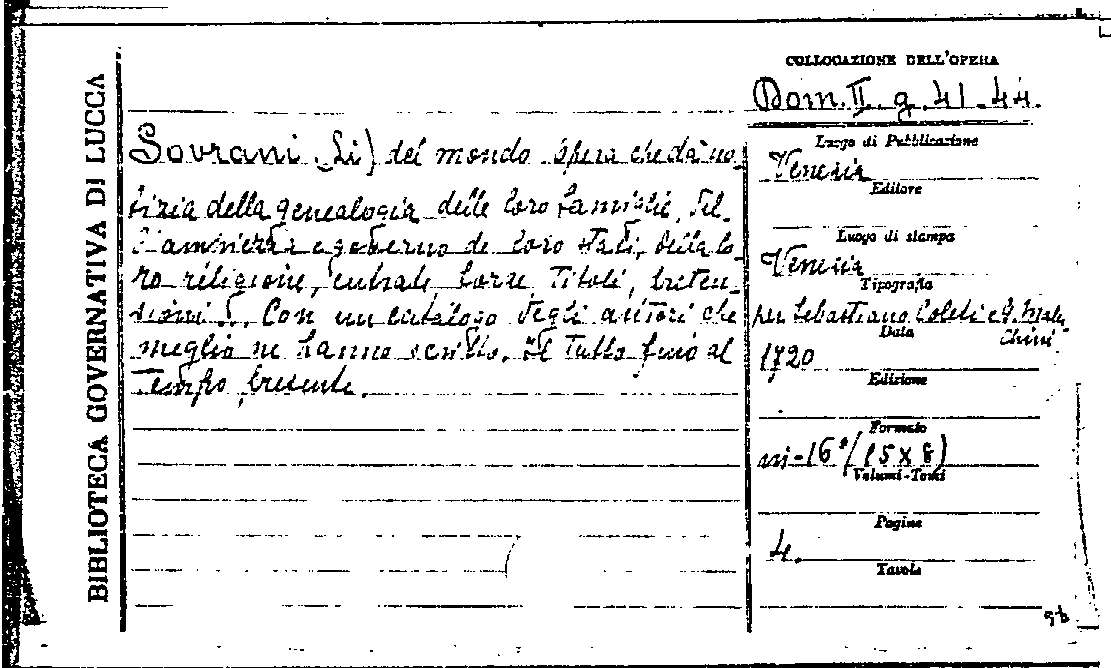 BIBLIOTECA GOVERNATIVA DI LUCCA
Sovrani (Li) del mondo opera che dà no
tizia della genealogia delle loro famiglie, del
l'ampiezza e governo de' loro stati, della lo
ro religione, entrate, forze, Titoli, preten-
sioni ... Con un catalogo degli autori che
meglio ne hanno scritto. Il tutto fino al
Tempo presente.
COLLOCAZIONE DELL'OPERA
Dom. II. g. 41.44.
Luogo di Pubblicazione
Venezia
Editore
Luogo di stampa
Venezia
Tipografia
per Sebastiano Coleti e G. Mal
chini
Data
1720
Edizione
Formato
in-16°/(15x8)
Volumi-Tomi
Pagine
4.
Tavole